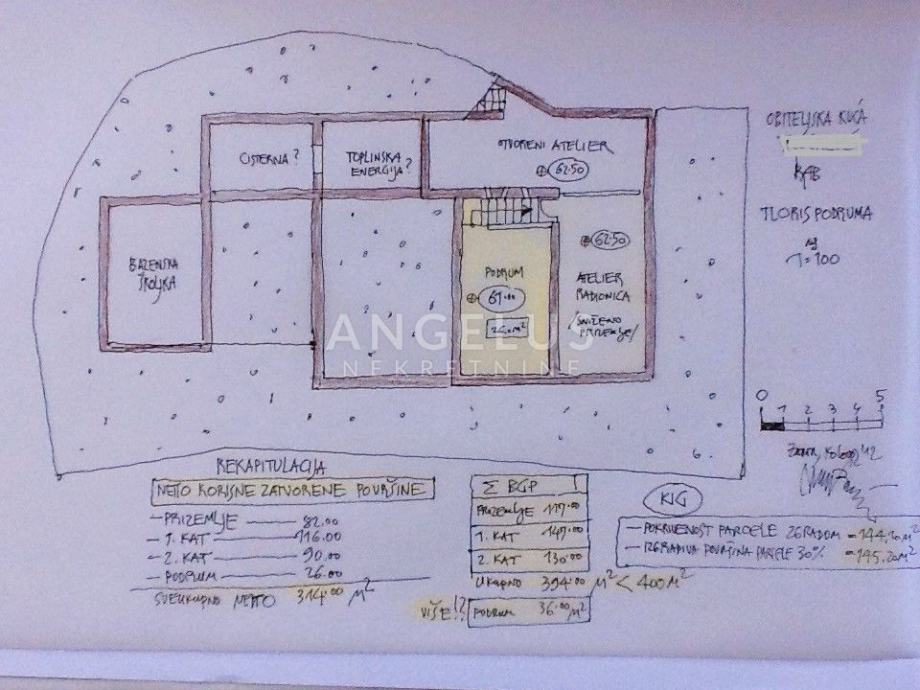 OBITELJSKA KUĆA
RAB
TLORIS PODRUMA
MJ
1:100
OTVORENI ATELIER
62.50
CISTERNA?
TOPLINSKA
ENERGIJA?
62.50
BAZENSKA
ŠKOLJKA
PODRUM
61.00
26.m²
ATELIER
RADIONICA
/SNIŽENO
PRIZEMLJE/
ANGELUS
NEKRETNINE
0 1 2 3 4 5
REKAPITULACIJA
NETO KORISNE ZATVORENE POVRŠINE
— PRIZEMLJE — 82.00
— 1. KAT — 116.00
— 2. KAT — 90.00
— PODRUM — 26.00
SVEUKUPNO NETTO 314.00 M²
Σ BGP
PRIZEMLJE 117.00
1. KAT 147.00
2. KAT 130.00
UKUPNO 394.00 M² < 400 M²
VIŠE!? PODRUM 36.00 M²
KIG
— POKRIVENOST PARCELE ZGRADOM = 144.
— IZGRADIVA POVRŠINA PARCELE 30% = 145.20 M²